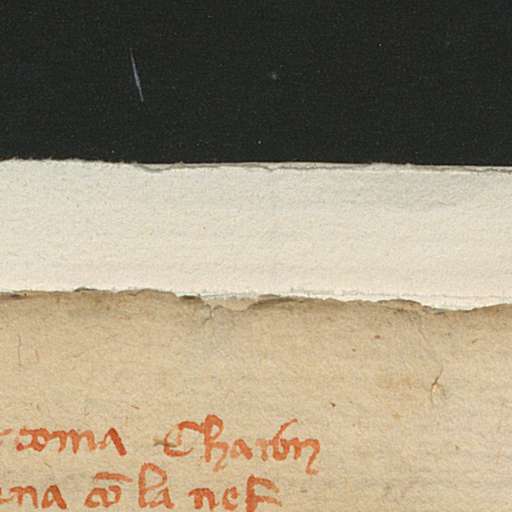 coma Charon
ena cō la nef